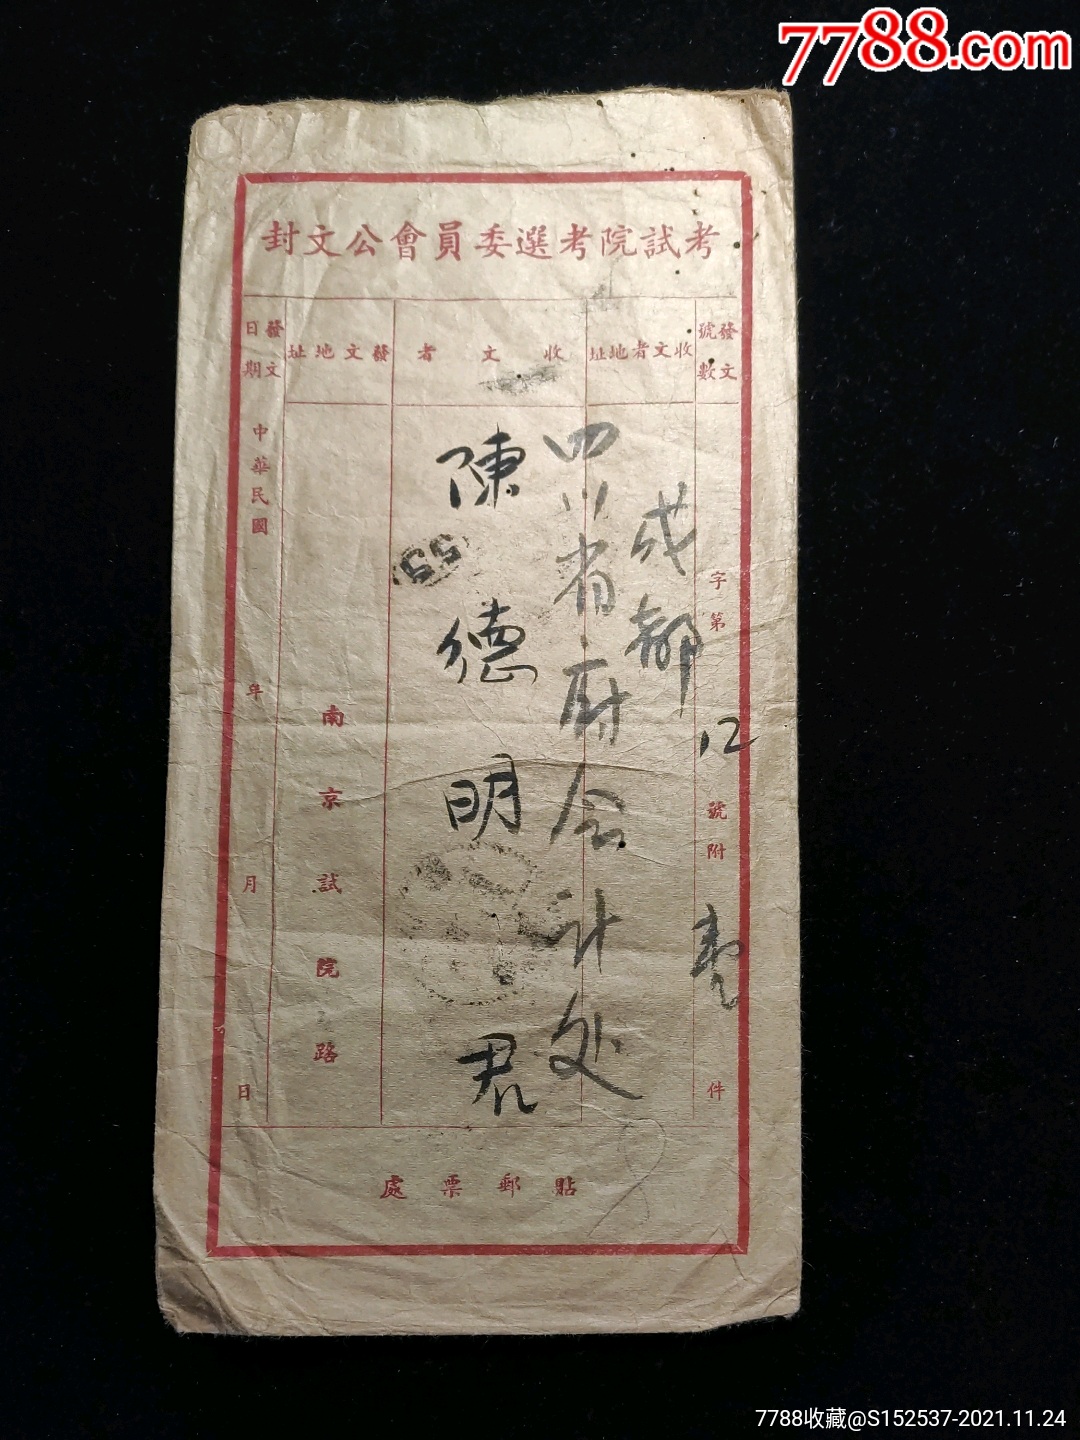 7788.com
考試院考選委員會公文封
發文號數
收文者地址
收文者
發文地址
發文日期
字第12號附壱件
成都
四川省府会计处
陳德明君
55
南京試院路
中華民國年月日
貼郵票處
7788收藏@S152537-2021.11.24